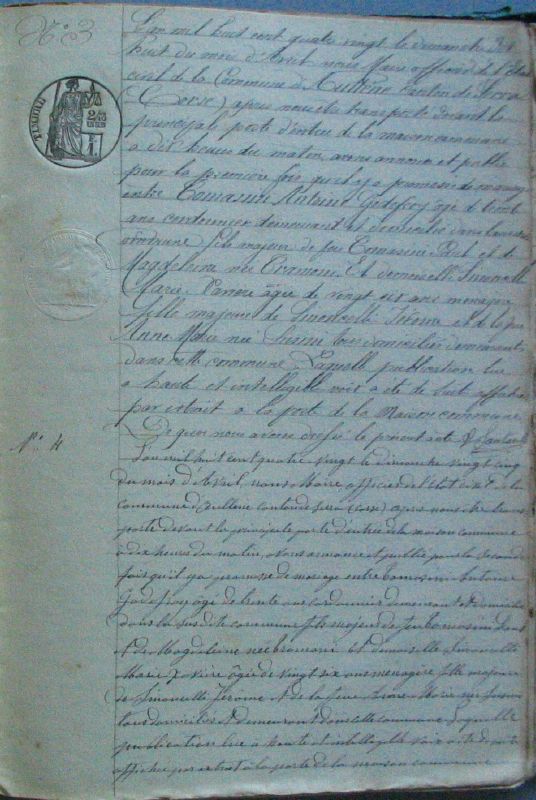 N° 3
L'an mil huit cent quatre vingt le dimanche dix
huit du mois d'Avril nous Maire officier de l'état
civil de la Commune d'Aullène canton de Serra
(Corse) après nous être transporté devant la
principale porte d'entrée de la maison commune
à dix heures du matin, avons annoncé et publié
pour la première fois qu'il y a promesse de mariage
entre Tomasini Antoine Godefroy âgé de trente
ans cordonnier demeurant et domicilié dans la
commune fils majeur de feu Tomasini Paul et de
Magdeleine née Tramoni Et demoiselle Simonelli
Marie Xavière âgée de vingt six ans ménagère
fille majeure de Simonelli Jérôme et de la feue
Anne Marie née Susini tous domiciliés demeurants
dans cette commune. Laquelle publication lue
à haute et intelligible voix a été de suite affichée
par extrait à la porte de la Maison commune
De quoi nous avons dressé le présent acte
N° 4
L'an mil huit cent quatre vingt le dimanche vingt cinq
du mois d'Avril, nous Maire officier de l'état civil de la
commune d'Aullene canton de Serra (Corse) après nous être transporté
porte devant la principale porte d'entrée de la maison commune
à dix heures du matin, avons annoncé et publié pour la seconde
fois qu'il y a promesse de mariage entre Tomasini Antoine
Godefroy âgé de trente ans cordonnier demeurant et domicilié
dans la susdite commune fils majeur de feu Tomasini Paul
et de Magdeleine née Tramoni Et demoiselle Simonelli
Marie Xavière âgée de vingt six ans ménagère fille majeure
de Simonelli Jérôme et de la feue Anne Marie née Susini
tous domiciliés et demeurant dans cette commune Laquelle
publication lue à haute et intelligible voix a été de suite
affichée par extrait à la porte de la maison commune